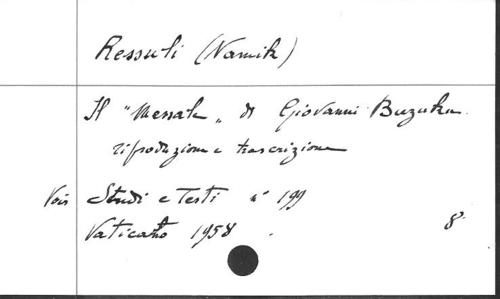 Ressuli (Namik)
Il "Messale" di Giovanni Buzuku.
riproduzione e trascrizione
Voir Studi e Testi n° 199
Vaticano 1958. 8°